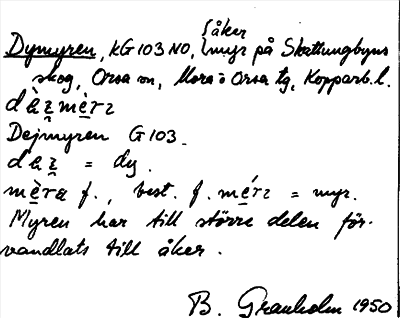 Dymyren, KG 103 NO, { åker
myr på Skattungbyns
skog, Orsa sn, Mora o Orsa tg, Kopparb. l.
Dejmyren G 103.
= dy.
f., best. f. = myr.
Myren har till större delen för-
vandlats till åker.
B. Granholm 1950